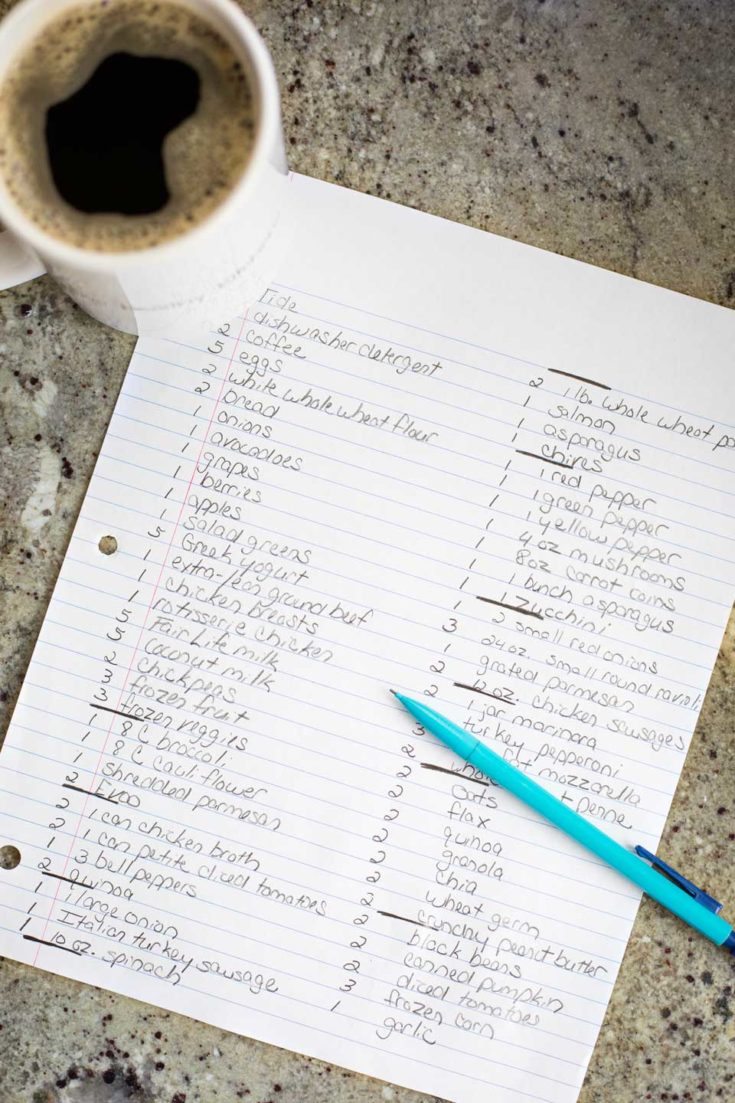 Tide
dishwasher detergent
2 coffee
5 eggs
2 white whole wheat flour
2 bread
1 onions
1 avocadoes
1 grapes
1 berries
1 apples
1 salad greens
5 Greek yogurt
1 extra-lean ground beef
1 chicken breasts
rotisserie chicken
5 Fairlife milk
5 coconut milk
2 chickpeas
3 frozen fruit
3 frozen veggies
1 8 c broccoli
1 8 c cauliflower
1 shredded parmesan
2 Evoo
2 1 can chicken broth
2 1 can petite diced tomatoes
1 3 bell peppers
2 quinoa
1 1 large onion
1 Italian turkey sausage
1 10 oz. spinach
2 1 lb. whole wheat pa
1 salmon
1 asparagus
1 chives
1 1 red pepper
1 1 green pepper
1 1 yellow pepper
1 4 oz mushrooms
1 8 oz carrot coins
1 1 bunch asparagus
1 1 zucchini
3 2 small red onions
1 24 oz. small round ravioli
2 grated parmesan
2 12 oz. chicken sausages
1 jar marinara
3 turkey pepperoni
2 fat mozzarella
2 penne
2 oats
2 flax
2 quinoa
2 granola
2 chia
2 wheat germ
2 crunchy peanut butter
2 black beans
2 canned pumpkin
2 diced tomatoes
3 frozen corn
1 garlic